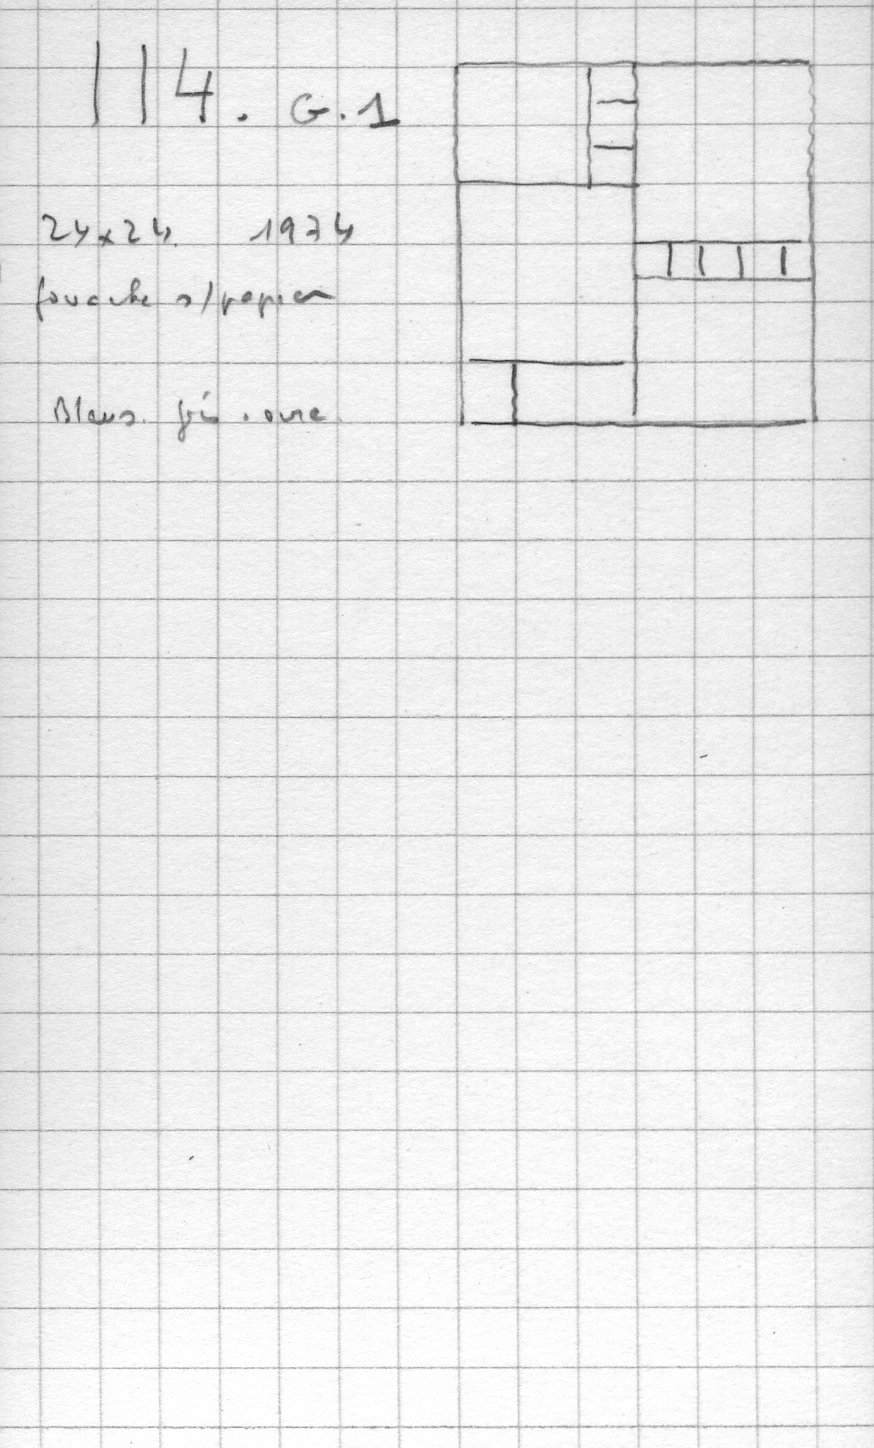 114. G.1
24x24. 1974
gouache s/papier
Blanc. gris. ocre.